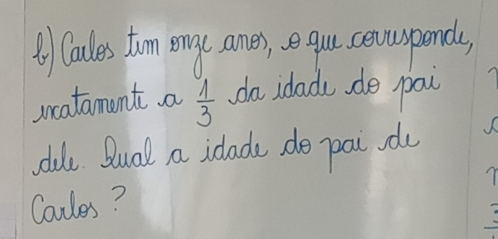 b) Carlos tem onze anos, o que corresponde,
exatamente a 1/3 da idade do pai
dele. Qual a idade do pai de
Carlos?